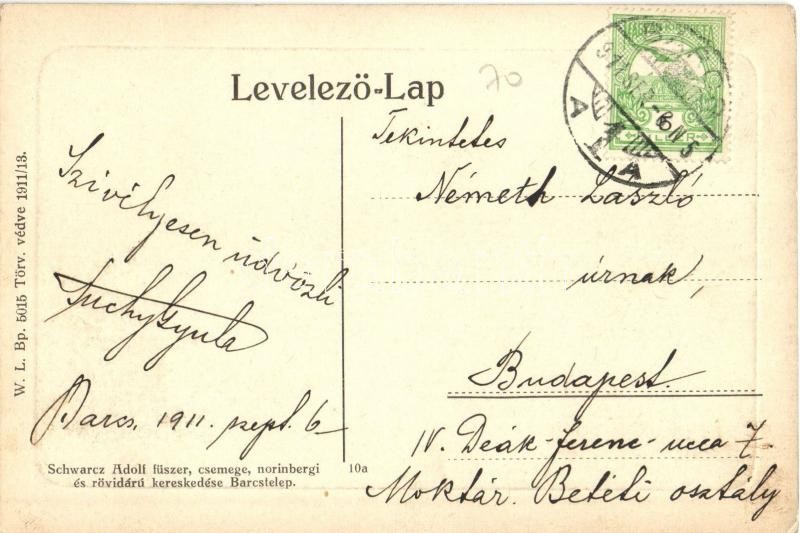 Levelező-Lap
70
Szivélyesen üdvözli
Suchy Gyula
Barcs, 1911. szept. 6.
Tekintetes
Németh László
úrnak,
Budapest.
IV. Deák-ferenc-ucca 7.
Moktár. Betéti osztály
Schwarcz Adolf füszer, csemege, norinbergi
és rövidárú kereskedése Barcstelep.
10a
W. L. Bp. 5015 Törv. védve 1911/13.